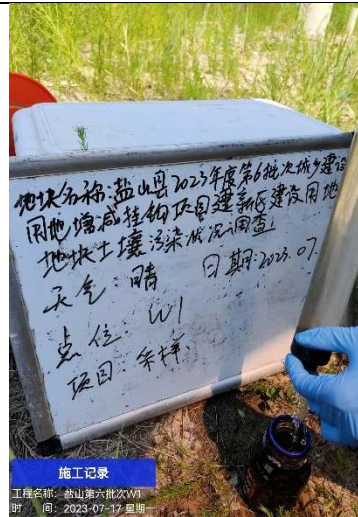 地块名称:盐山县2023年度第6批次城乡建设
用地增减挂钩项目建新区建设用地
地块土壤污染状况调查
天气:晴 日期:2023.07.
点位:W1
项目:采样
施工记录
工程名称:盐山第六批次W1
时 间:2023-07-17 星期一